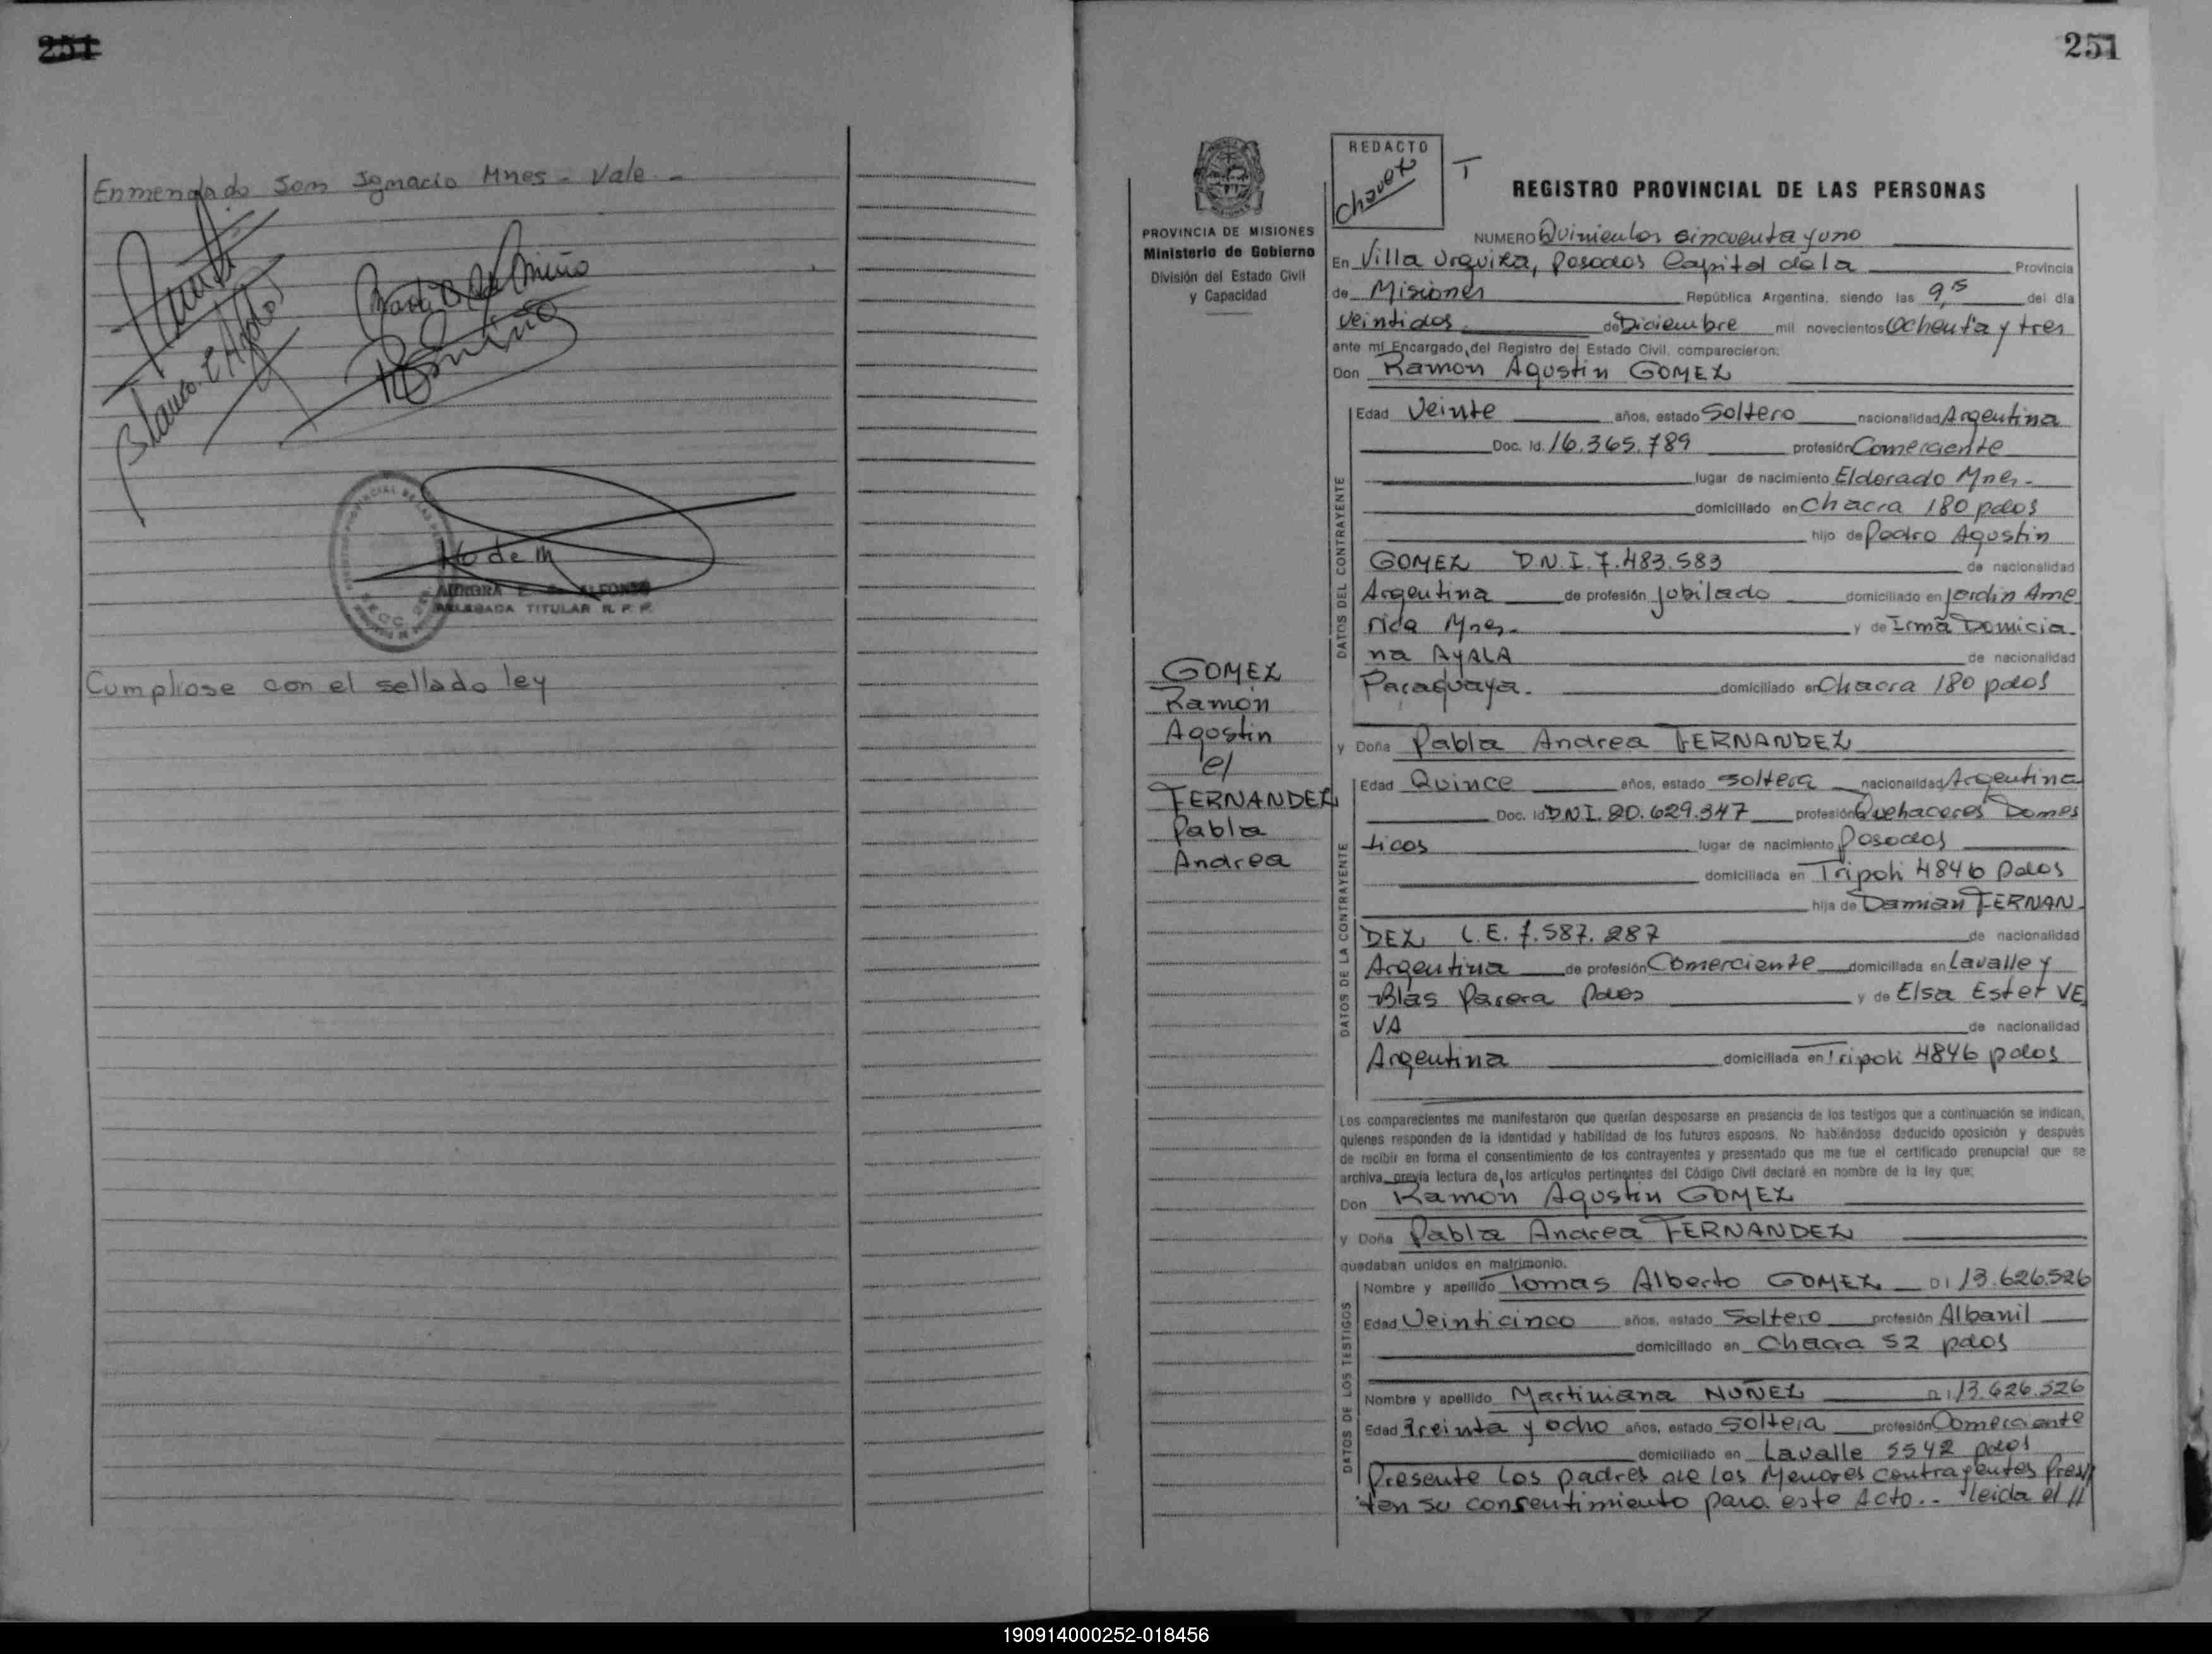 251
Enmendado San Ignacio Mnes - Vale -
Cumpliose con el sellado ley
DELEGADA TITULAR R. P. P.
251
REDACTO
Chavez
T
PROVINCIA DE MISIONES
Ministerio de Gobierno
División del Estado Civil
y Capacidad
REGISTRO PROVINCIAL DE LAS PERSONAS
NUMERO Quinientos cincuenta y uno
En Villa Urquiza, Posadas Capital de la Provincia
de Misiones República Argentina, siendo las 9,15 del día
veintidos de Diciembre mil novecientos Ochenta y tres
ante mí Encargado del Registro del Estado Civil, comparecieron:
Don Ramon Agustin GOMEZ
DATOS DEL CONTRAYENTE
Edad Veinte años, estado Soltero nacionalidad Argentina
Doc. Id. 16.365.789 profesión Comerciante
lugar de nacimiento Eldorado Mnes.
domiciliado en Chacra 180 pdas
hijo de Pedro Agustin
GOMEZ D.N.I. 7.483.583 de nacionalidad
Argentina de profesión jubilado domiciliado en Jardin Ame
rica Mnes. y de Irma Domicia
na AYALA de nacionalidad
Paraguaya. domiciliado en Chacra 180 pdas
GOMEZ
Ramón
Agustin
c/
FERNANDEZ
Pabla
Andrea
y Doña Pabla Andrea FERNANDEZ
DATOS DE LA CONTRAYENTE
Edad Quince años, estado soltera nacionalidad Argentina
Doc. Id DNI. 20.629.347 profesión Quehaceres Domes
ticos lugar de nacimiento Posadas
domiciliada en Tripoli 4846 Pdas
hija de Damian FERNAN
DEZ L.E. 7.587.287 de nacionalidad
Argentina de profesión Comerciante domiciliada en Lavalle y
Blas Parera Pdas y de Elsa Ester VE
VA de nacionalidad
Argentina domiciliada en Tripoli 4846 pdas
Los comparecientes me manifestaron que querían desposarse en presencia de los testigos que a continuación se indican,
quienes responden de la identidad y habilidad de los futuros esposos. No habiéndose deducido oposición y después
de recibir en forma el consentimiento de los contrayentes y presentado que me fue el certificado prenupcial que se
archiva, previa lectura de los artículos pertinentes del Código Civil declaré en nombre de la ley que:
Don Ramon Agustin GOMEZ
y Doña Pabla Andrea FERNANDEZ
quedaban unidos en matrimonio.
DATOS DE LOS TESTIGOS
Nombre y apellido Tomas Alberto GOMEZ DI 13.626.526
Edad Veinticinco años, estado Soltero profesión Albanil
domiciliado en Chacra 52 pdas
Nombre y apellido Martiniana NUÑEZ D.I 13.626.526
Edad Treinta y ocho años, estado soltera profesión Comerciante
domiciliado en Lavalle 5542 pdas
Presente los padres de los Menores contrayentes Pres//
tan su consentimiento para este Acto.. leida el //
190914000252-018456